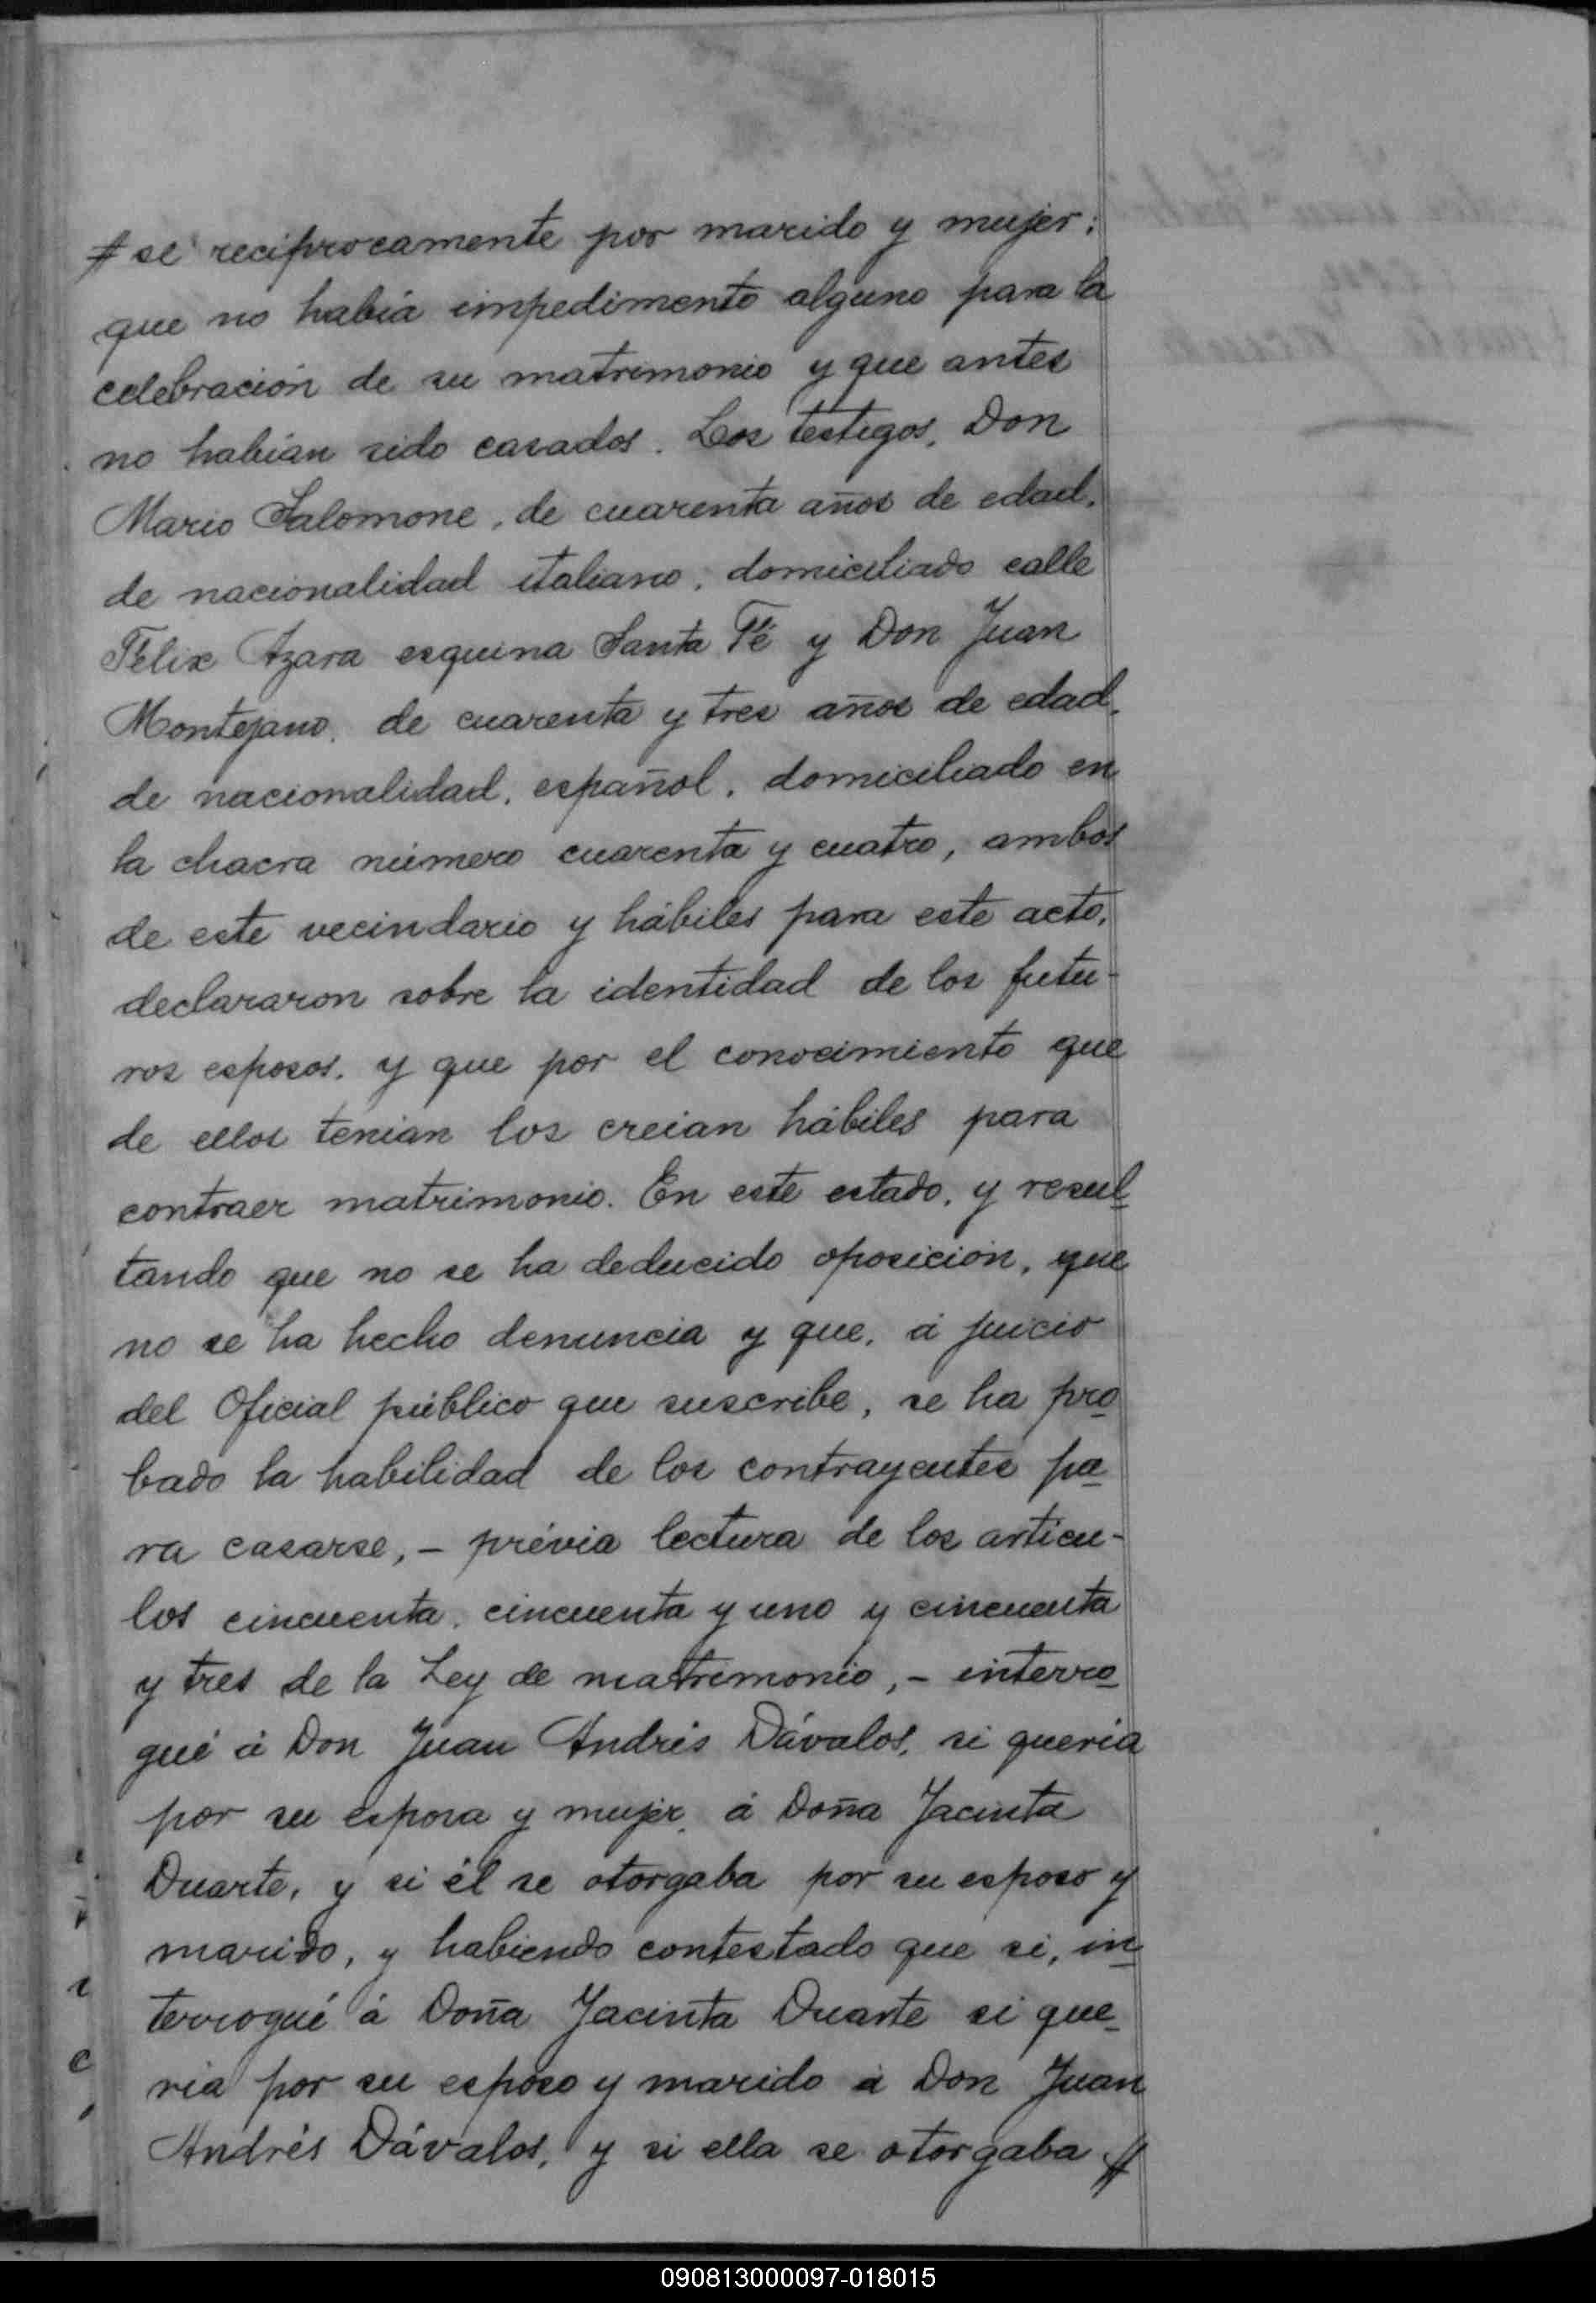 # se recíprocamente por marido y mujer:
que no había impedimento alguno para la
celebración de su matrimonio y que antes
no habían sido casados. Los testigos, Don
Mario Salomone, de cuarenta años de edad,
de nacionalidad italiano, domiciliado calle
Félix Azara esquina Santa Fé y Don Juan
Montejano, de cuarenta y tres años de edad,
de nacionalidad, español, domiciliado en
la chacra número cuarenta y cuatro, ambos
de este vecindario y hábiles para este acto,
declararon sobre la identidad de los futu-
ros esposos, y que por el conocimiento que
de ellos tenían los creían hábiles para
contraer matrimonio. En este estado, y resul-
tando que no se ha deducido oposición, que
no se ha hecho denuncia y que, á juicio
del Oficial público que suscribe, se ha pro-
bado la habilidad de los contrayentes pa-
ra casarse, - prévia lectura de los artícu-
los cincuenta, cincuenta y uno y cincuenta
y tres de la Ley de matrimonio, - interro-
gué á Don Juan Andrés Dávalos, si quería
por su esposa y mujer, á Doña Jacinta
Duarte, y si él se otorgaba por su esposo y
marido, y habiendo contestado que si, in-
terrogué á Doña Jacinta Duarte si que-
ría por su esposo y marido á Don Juan
Andrés Dávalos, y si ella se otorgaba #
090813000097-018015